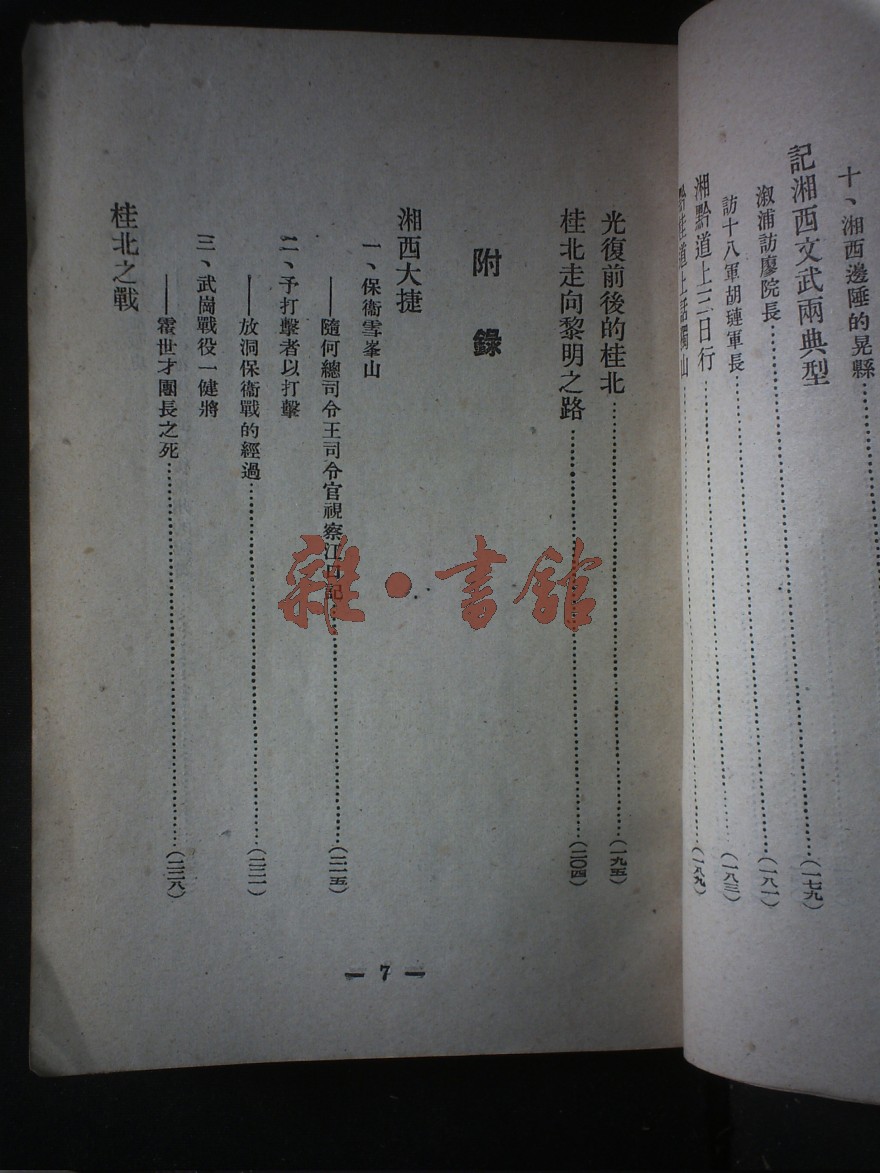 十、湘西邊陲的晃縣
記湘西文武兩典型……(一七九)
溆浦訪廖院長……(一八一)
訪十八軍胡璉軍長……(一八三)
湘黔道上三日行……(一八九)
黔桂道上話獨山
光復前後的桂北……(一九五)
桂北走向黎明之路……(二〇四)
附錄
湘西大捷
一、保衞雪峯山
——隨何總司令王司令官視察江口記……(二一五)
二、予打擊者以打擊
——放洞保衞戰的經過……(二二一)
三、武崗戰役一健將
——霍世才團長之死……(二二八)
桂北之戰
— 7 —
雜·書館